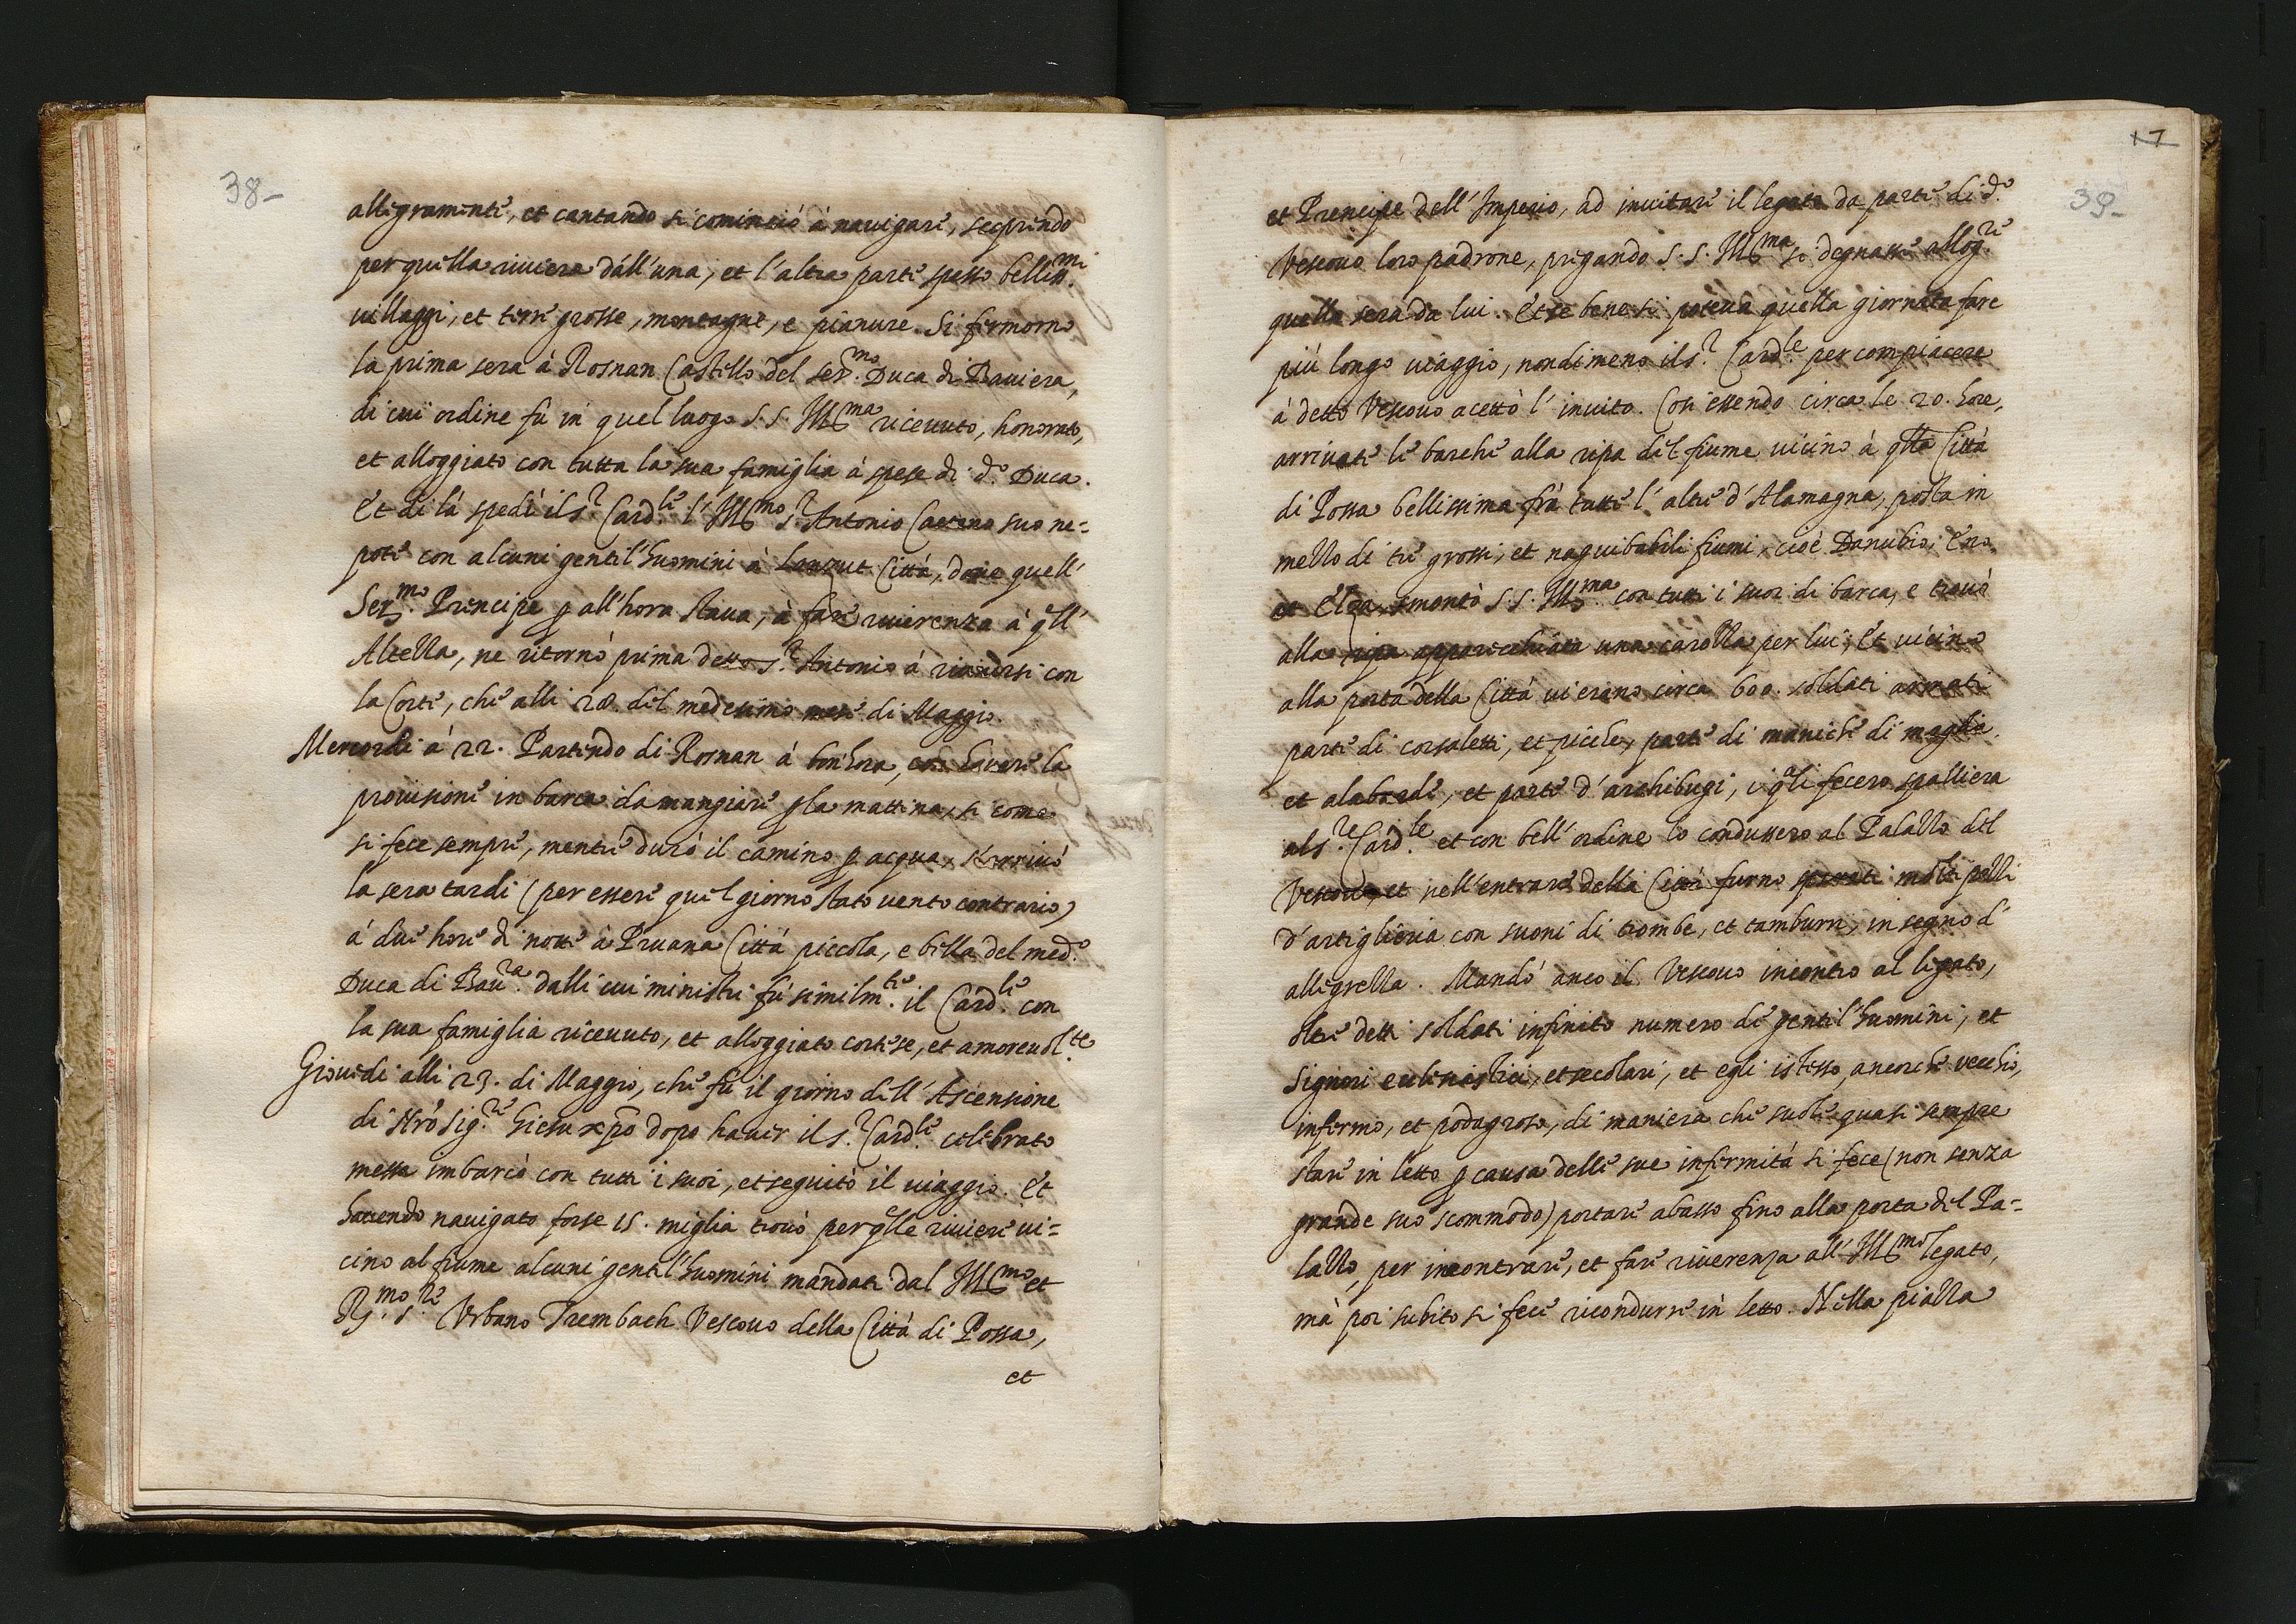 38-
allegramente, et cantando si cominciò à nauigare, scoprendo
per quella riuiera dall'una, et l'altra parte spesso belliss.mi
uillaggi, et terre grosse, montagne, e pianure. Si fermorno
la prima sera à Rosnan Castello del Ser.mo Duca di Bauiera,
di cui ordine fù in quel luogo S.S. Ill.ma riceuuto, honorato,
et alloggiato con tutta la sua famiglia à spese di d.o Duca.
Et di là spedì il s.r Card.le l'Ill.mo s.r Antonio Caetano suo ne=
pote con alcuni gentil'huomini à Lanzut Città, doue quell'
Ser.mo Prencipe p all'hora staua, à fare riuerenza à qll'
Altezza, ne ritornò prima detto s.r Antonio à riunirsi con
la Corte, che alli 28. del medesimo mese di Maggio.
Mercordi à 22. Partendo di Rosnan à bon'hora, con hauere la
prouisione in barca da mangiare p la mattina, si come
si fece sempre, mentre durò il camino p acqua, s'arriuò
la sera tardi (per essere quel giorno stato uento contrario)
à due hore di notte à Pruana Città piccola, e bella del med.o
Duca di Bau.ra dalli cui ministri fù similm.te il Card.le con
la sua famiglia riceuuto, et alloggiato cortese, et amoreuol.te
Giouedi alli 23. di Maggio, che fù il giorno dell'Ascensione
di Nro Sig.re Giesu xpo dopo hauer il s.r Card.le celebrato
messa imbarcò con tutti i suoi, et seguitò il uiaggio. Et
hauendo nauigato forse 15. miglia trouò per qlle riuiere ui=
cino al fiume alcuni gentil'huomini mandati dal Ill.mo et
R.mo s.re Vrbano Trembach Vescouo della Città di Possa,
et
17
39-
et Prencipe dell'Imperio, ad inuitare il legato da parte di d.o
Vescouo loro padrone, pregando S.S. Ill.ma si degnasse allog.re
quella sera da lui. Et se bene si poteua quella giornata fare
più longo uiaggio, nondimeno il s.r Card.le per compiacere
à detto Vescouo acettò l'inuito. Così essendo circa le 20. hore,
arriuate le barche alla ripa del fiume uicino à qlla Città
di Possa bellissima frà tutte l'altre d'Alamagna, posta in
mezzo di tre grossi, et nauigabili fiumi, cioè Danubio, Eno,
et Elza, smontò S.S. Ill.ma con tutti i suoi di barca, e trouò
alla ripa apparecchiata una carozza per lui, Et uicino
alla porta della Città ui erano circa 600. soldati armati
parte di corsaletti, et picche, parte di maniche di maglia,
et alabarde, et parte d'archibugi, i qli fecero spalliera
al s.re Card.le et con bell'ordine lo condussero al Palazzo del
Vescouo, et nell'entrare della Città furno sparati molti pezzi
d'artiglieria con suoni di trombe, et tamburri, in segno d'
allegrezza. Mandò anco il Vescouo incontro al legato,
oltre detti soldati infinito numero di gentil'huomini, et
Signori eclesiastici, et secolari, et egli istesso, ancorche vecchio,
infermo, et podagroso, di maniera che suole quasi sempre
stare in letto p causa delle sue infermità si fece (non senza
grande suo scommodo) portare abasso fino alla porta del Pa=
lazzo, per incontrare, et fare riuerenza all'Ill.mo legato,
mà poi subito si fece ricondurre in letto. Nella piazza